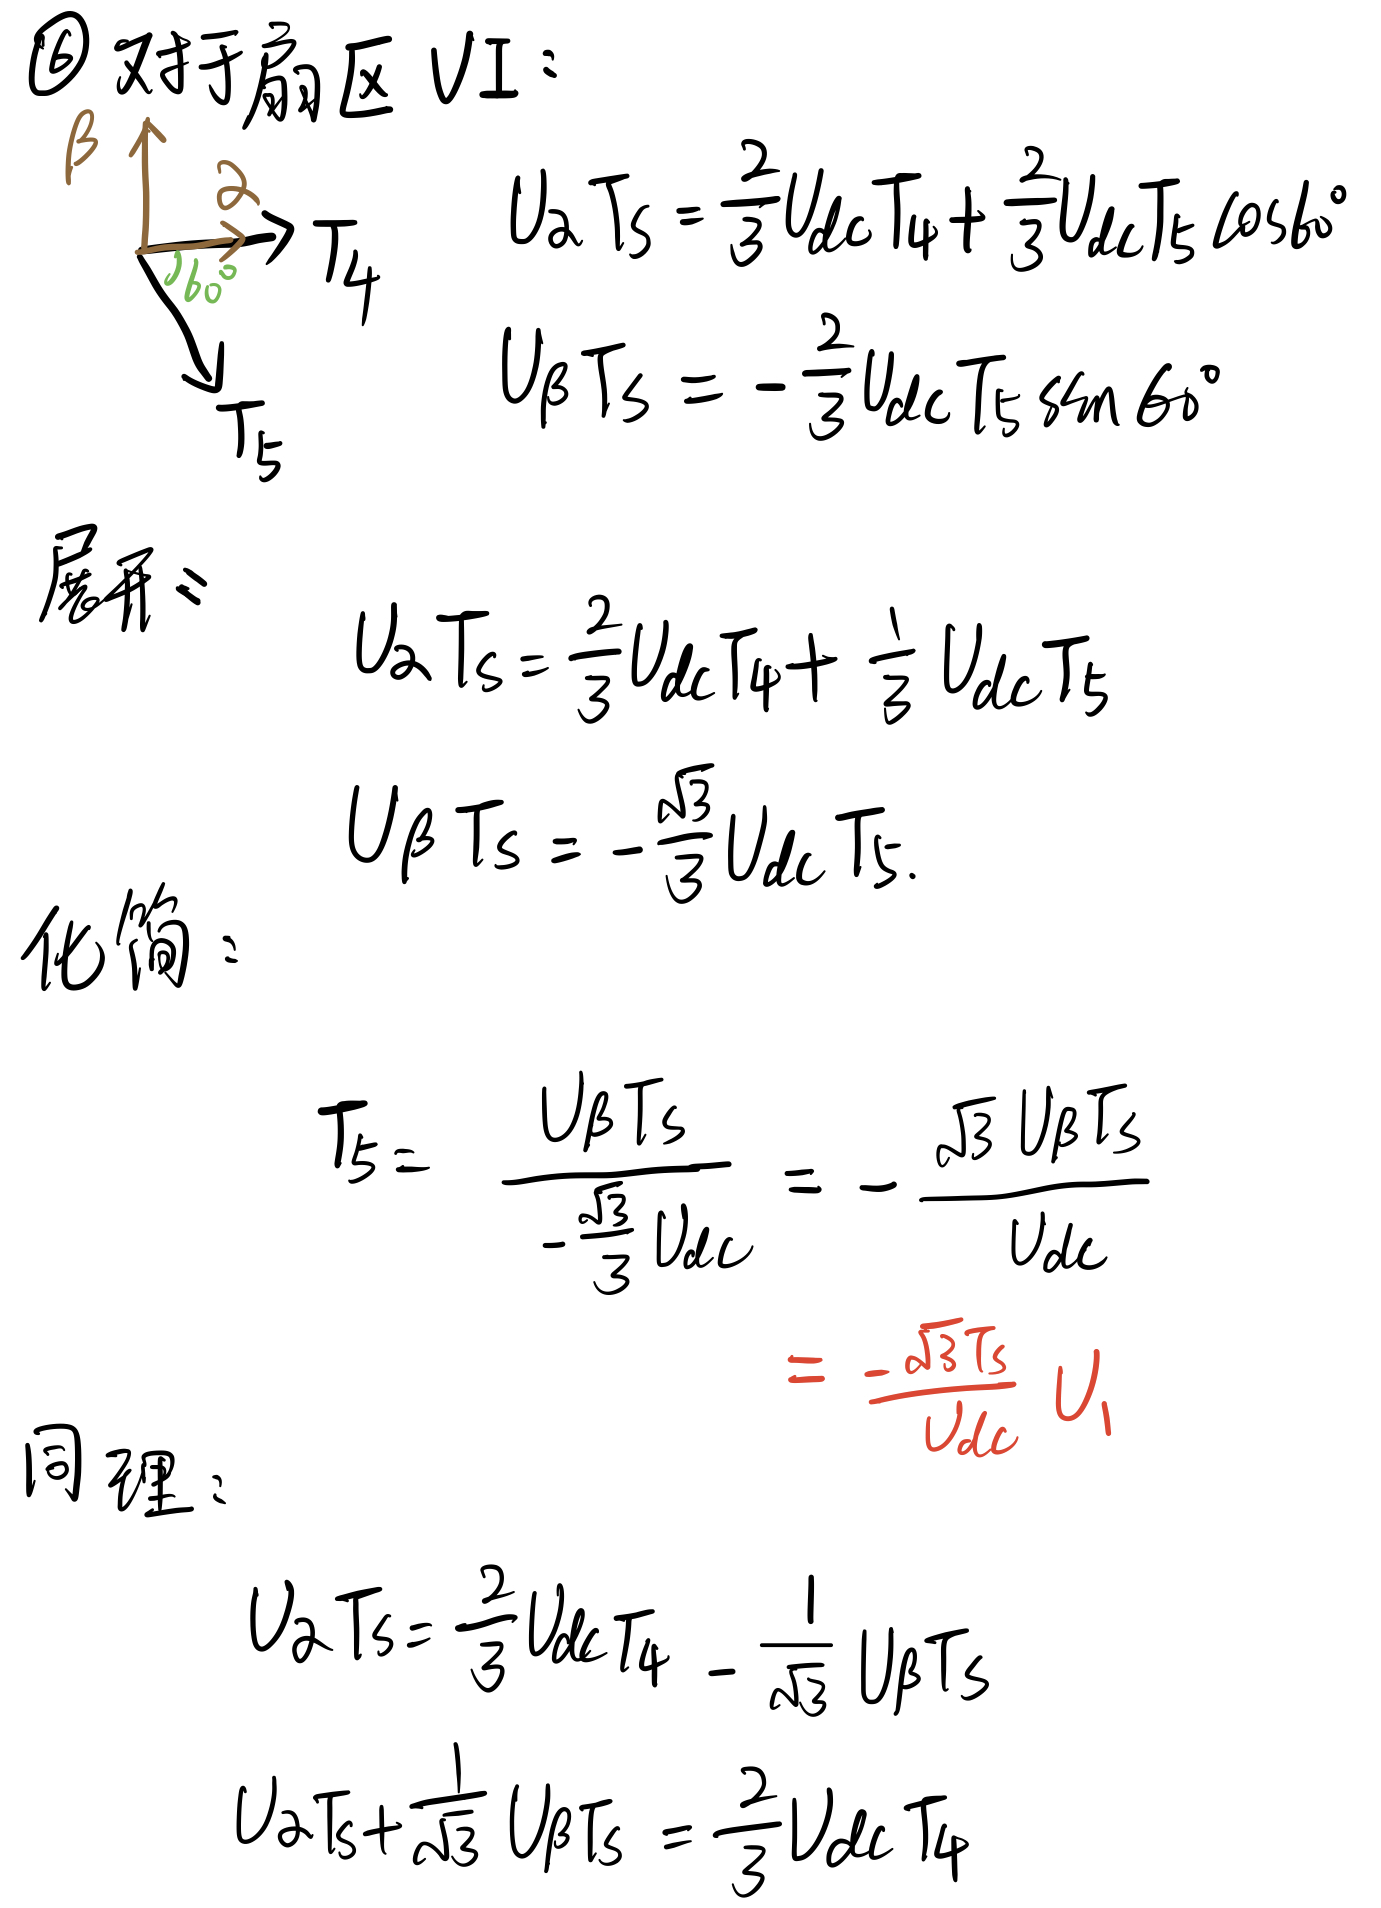 ⑥ 对于扇区 VI：
β
α
T4
60°
T5
UαTs = 2/3 UdcT4 + 2/3 UdcT5 cos60°
UβTs = - 2/3 UdcT5 sin60°
展开：
UαTs = 2/3 UdcT4 + 1/3 UdcT5
UβTs = - √3/3 UdcT5.
化简：
T5 = UβTs / (-√3/3 Udc) = - √3UβTs / Udc
= -√3Ts/Udc U1
同理：
UαTs = 2/3 UdcT4 - 1/√3 UβTs
UαTs + 1/√3 UβTs = 2/3 UdcT4